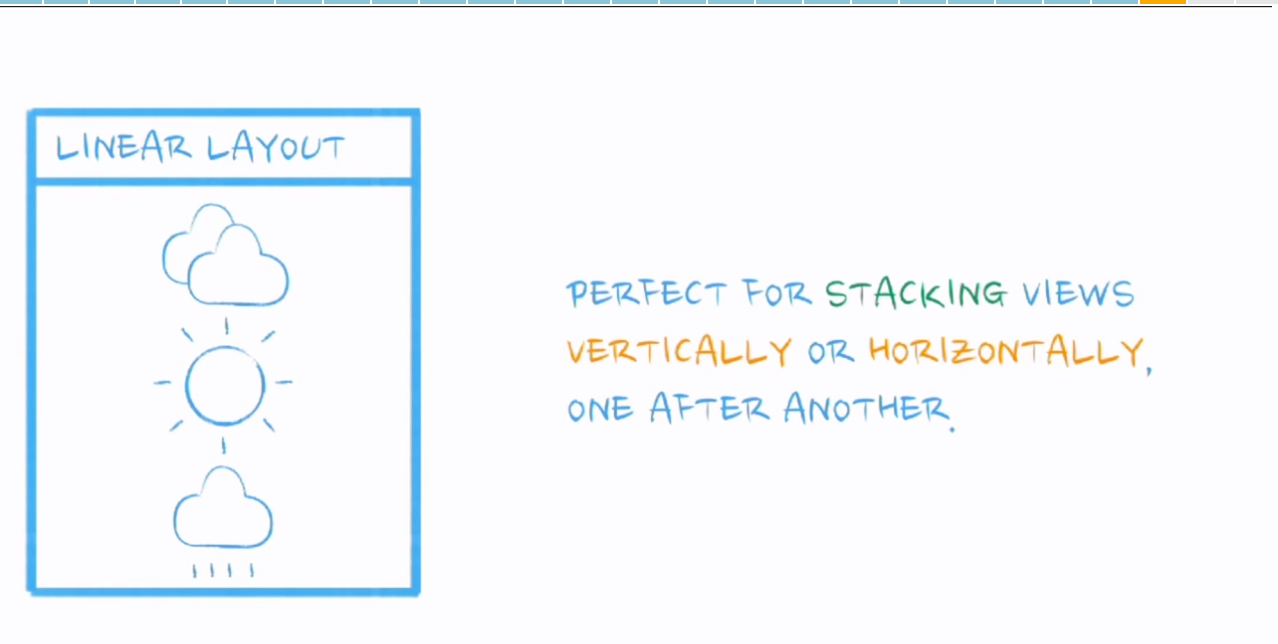 LINEAR LAYOUT
PERFECT FOR STACKING VIEWS
VERTICALLY OR HORIZONTALLY,
ONE AFTER ANOTHER.